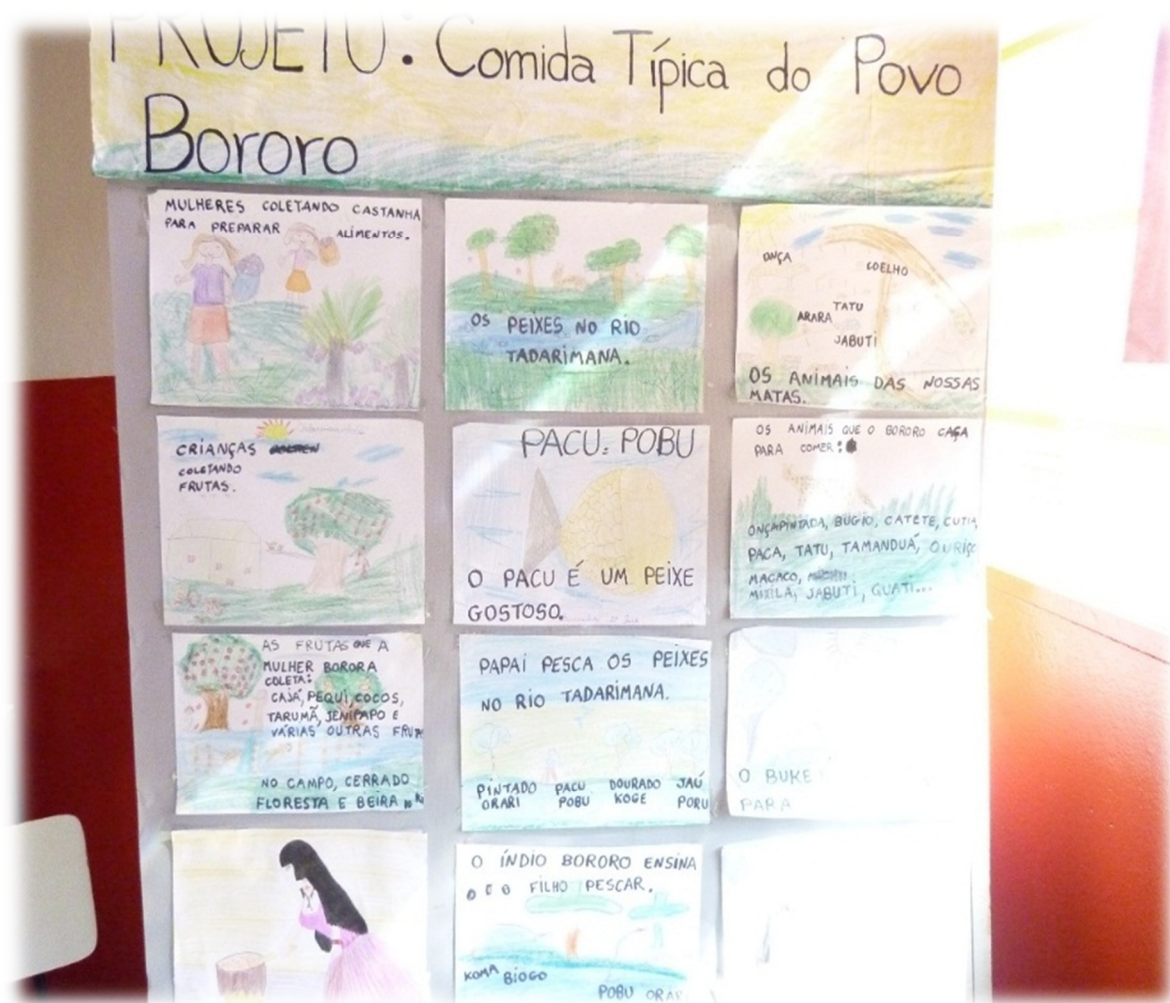 PROJETO: Comida Típica do Povo
Bororo
MULHERES COLETANDO CASTANHA
PARA PREPARAR ALIMENTOS.
OS PEIXES NO RIO
TADARIMANA.
ONÇA
COELHO
TATU
ARARA
JABUTI
OS ANIMAIS DAS NOSSAS
MATAS.
CRIANÇAS
COLETANDO
FRUTAS.
PACU: POBU
O PACU É UM PEIXE
GOSTOSO.
OS ANIMAIS QUE O BORORO CAÇA
PARA COMER:
ONÇAPINTADA, BUGIO, CATETE, CUTIA,
PACA, TATU, TAMANDUÁ, OURIÇO
MACACO,
MIXILA, JABUTI, QUATI...
AS FRUTAS QUE A
MULHER BORORA
COLETA:
CAJÁ, PEQUI, COCOS,
TARUMÃ, JENIPAPO E
VÁRIAS OUTRAS
NO CAMPO, CERRADO
FLORESTA E BEIRA
PAPAI PESCA OS PEIXES
NO RIO TADARIMANA.
PINTADO PACU DOURADO JAÚ
ORARI POBU KOGE PORU
O BUKE
PARA
O ÍNDIO BORORO ENSINA
FILHO PESCAR.
BIOGO
POBU